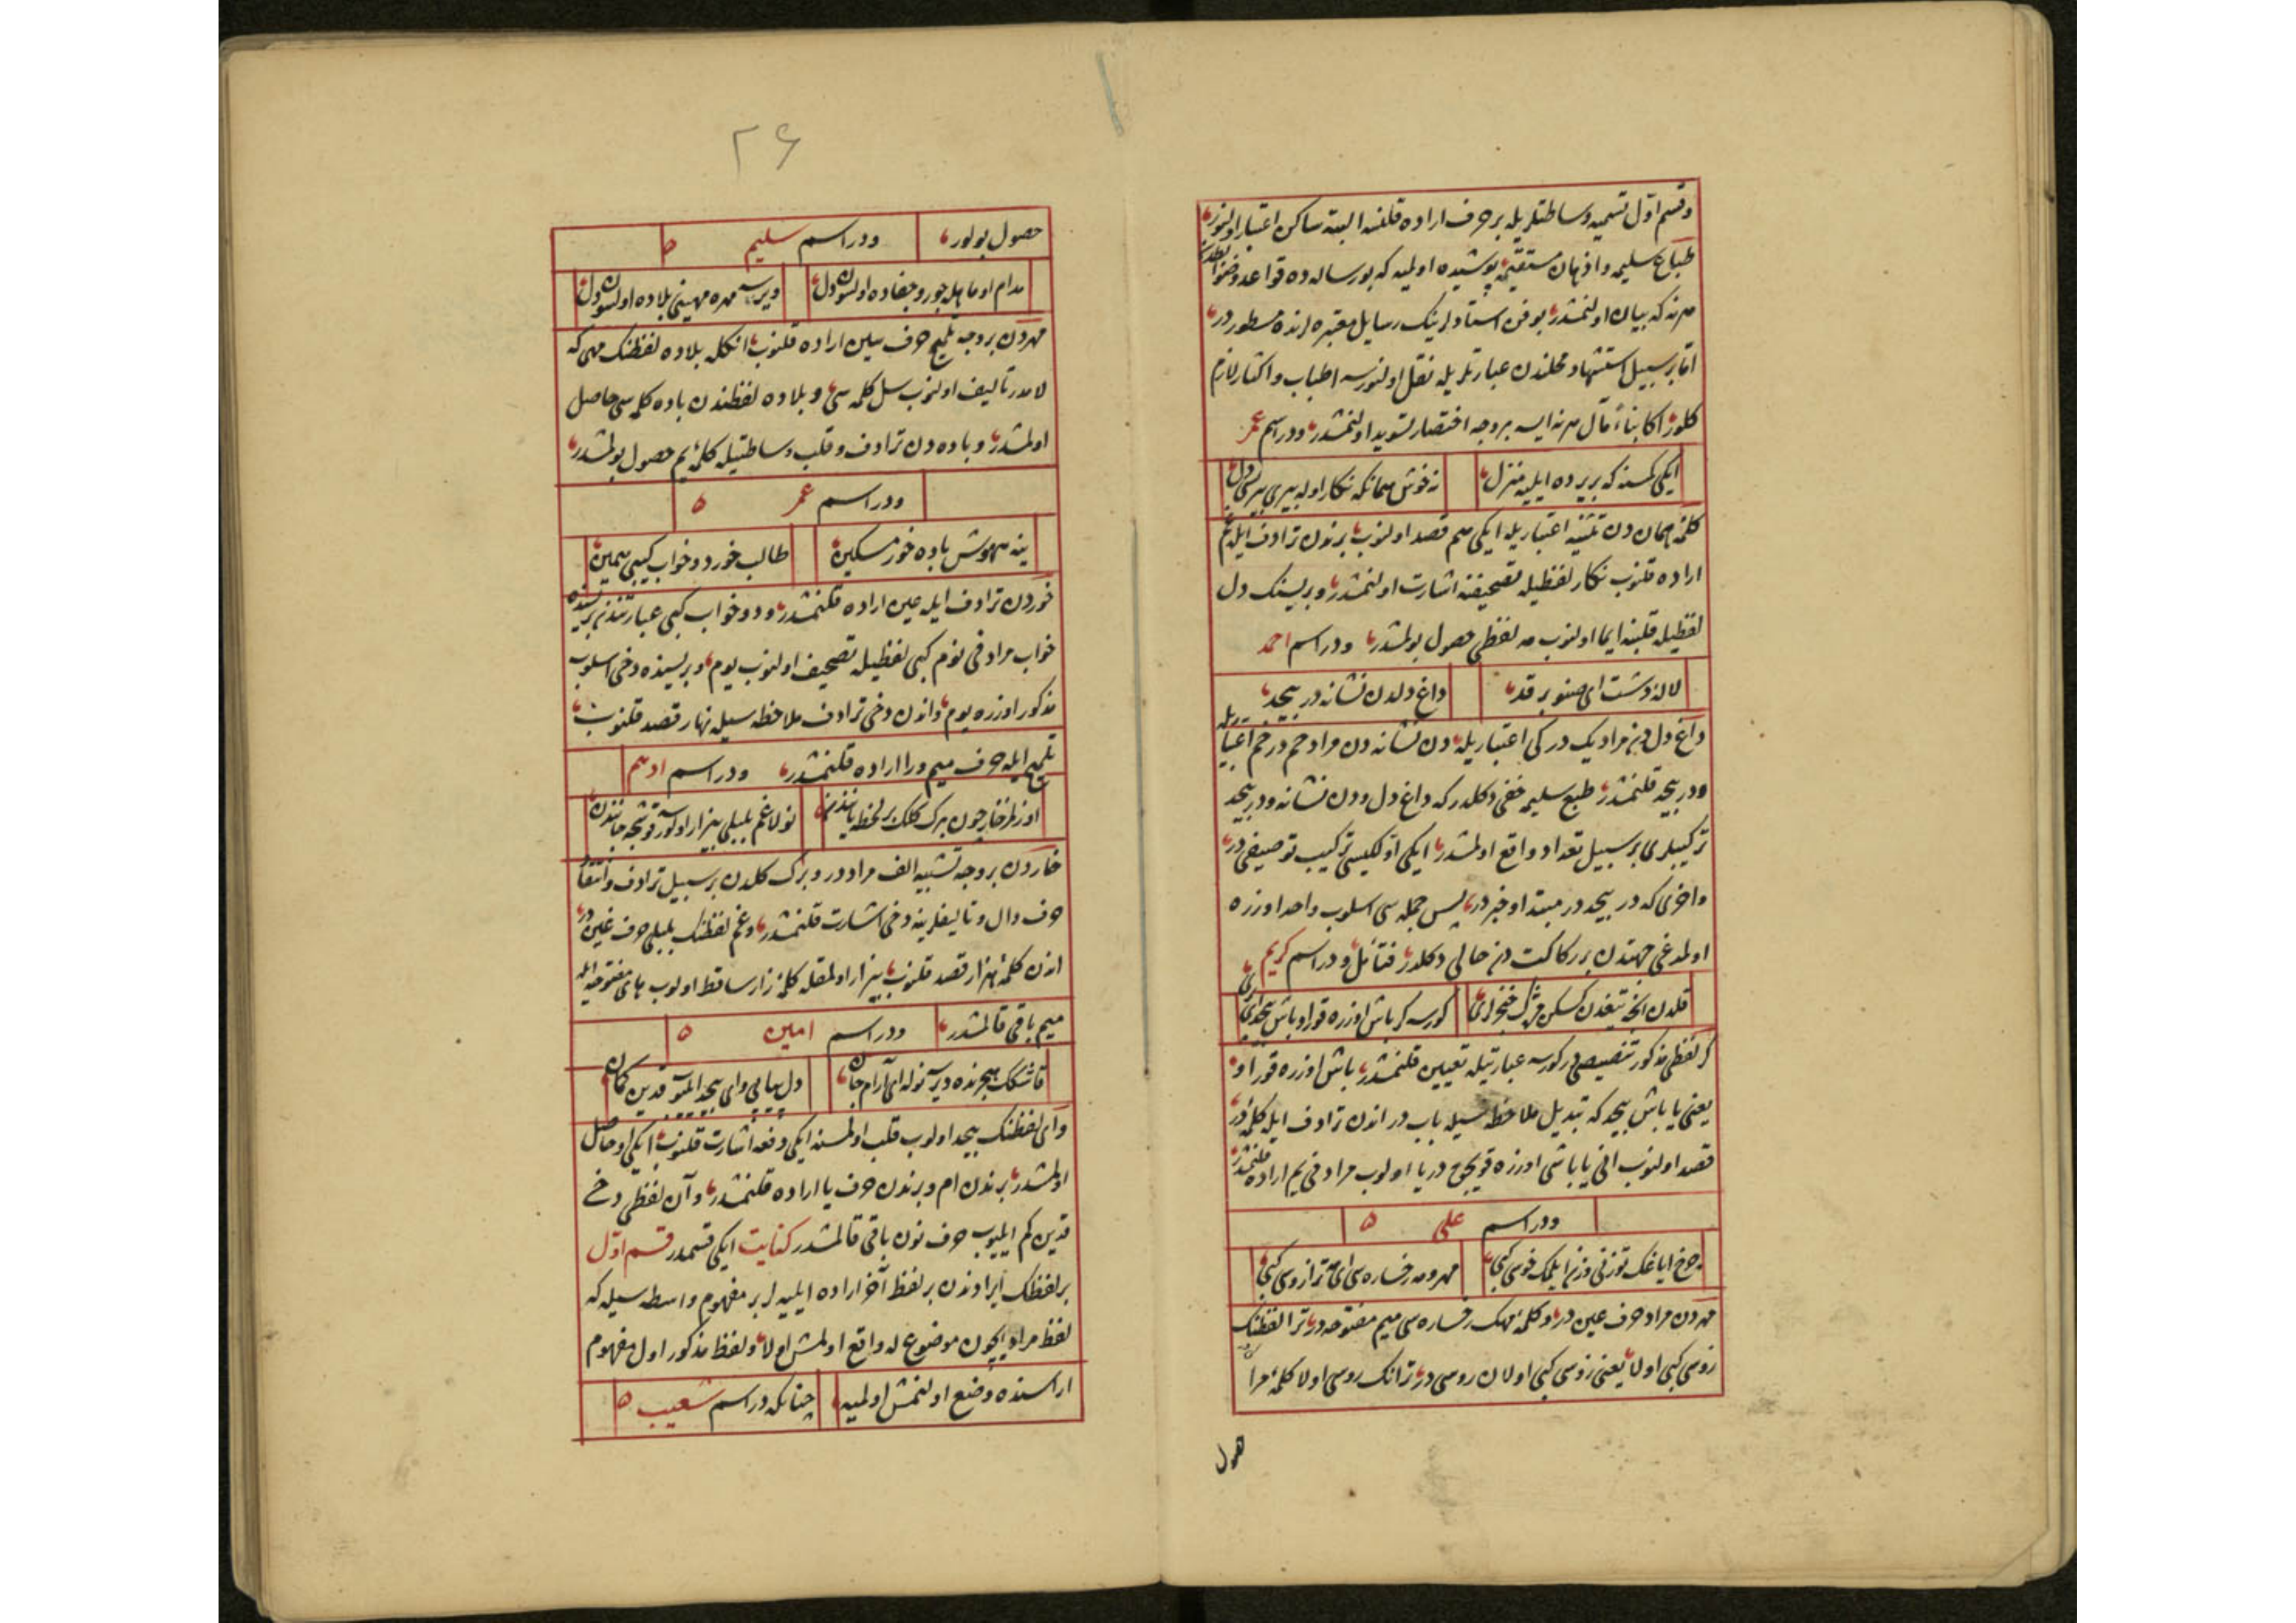 وقسم اول تسمیه وساطتلریله بر حرف اراده قلنسه البته ساکن اعتبار اولنور
طباع سلیمه واذهان مستقیمه پوشیده اولمیه که بو رساله ده قواعد وضوابطدن
هر نه که بیان اولنمشدر بو فن استادلرینک رسایل معتبره لرنده مسطوردر
اما بر سبیل استشهاد محلندن عبارتلریله نقل اولنورسه اطناب واکثار لازم
کلور اکا بناء مآل هر نه ایسه بر وجه اختصار تسوید اولنمشدر ودر اسم عمر
ایکی کسنه که بریرده ایلیه منزل نه خوش همانکه نکار اوله بیری بیرسی دل
کلمهٔ همان دن تثنیه اعتباریله ایکی هم قصد اولنوب برندن ترادف ایله غم
اراده قلنوب نکار لفظیله تصحیفنه اشارت اولنمشدر وبریسنک دل
لفظیله قلبنه ایما اولنوب مر لفظی حصول بولمشدر ودر اسم احمد
لالهٔ دشت ای صنوبر قد داغ دلدن نشانه در بیحد
داغ دل دن مراد یک در کی اعتباریله دن نشانه دن مراد حم در خم اعتباریله
ودر بیحد قلنمشدر طبع سلیمه خفی دکلدر که داغ دل ودن نشانه ودر بیحد
ترکیبلری بر سبیل تعداد واقع اولمشدر ایکی اولکیسی ترکیب توصیفی در
واخری که در بیحد در مبتدا وخبر در پس جمله سی اسلوب واحد اوزره
اولمدغی جهتدن بر رکاکت دن خالی دکلدر فتأمل ودر اسم کریم
قلدن انجه تیغدن کسکن مژک خنجرلری کورسه کر باش اوزره قور او باش بیحد لری
کر لفظی مذکور تنصیصی در کورسه عبارتیله تعیین قلنمشدر باش اوزره قور او
یعنی یا باش بیحد که تبدیل ملاحظه سیله باب در اندن ترادف ایله کلمهٔ در
قصد اولنوب انی یا باشی اوزره قویجق دریا اولوب مرادفی یم اراده قلنمشدر
ودر اسم علی ه
چرخ ایاغک توزنی وزن ایلمک خوسی کبی مهر ومه رخساره سی ای مه ترازوسی کبی
مهر دن مراد حرف عین در وکلمهٔ مهک رخساره سی میم مفتوحه در ترا لفظنک
زوسی کبی اولا یعنی زوسی کبی اولان روسی در ترانک روسی اولا کلمهٔ مرا
حصول
۲۶
حصول بولور ودر اسم سلیم ه
مدام او ماهله جور وجفاده اولسون دل ویرسه مهره مهینی بلاده اولسون دل
مهردن بر وجه تلمیح حرف سین اراده قلنوب انکله بلاده لفظنک مهی که
لامدر تألیف اولنوب سل کلمه سی وبلاده لفظندن باده کلمه سی حاصل
اولمشدر وباده دن ترادف وقلب وساطتیله کلمهٔ یم حصول بولمشدر
ودر اسم عمر ه
ینه مهوش باده خور مسکین طالب خور ودو خواب کبی همین
خوردن ترادف ایله عین اراده قلنمشدر ودو خواب کبی عبارتندن بریسنده
خواب مرادفی نوم کبی لفظیله تصحیف اولنوب یوم وبریسنده دخی اسلوب
مذکور اوزره یوم واندن دخی ترادف ملاحظه سیله نهار قصد قلنوب
تلمیح ایله حرف میم ورا اراده قلنمشدر ودر اسم ادهم
اوزلر خار چون برک کلک بر لحظه یانندن نولا غم بلبلی بیزار اولورسه قو شیجه جانندن
خاردن بر وجه تشبیه الف مراددر وبرک کلدن بر سبیل ترادف وانتقاد
حرف دال وتالیفلرینه دخی اشارت قلنمشدر وغم لفظنک بلبلی حرف غین در
اندن کلمهٔ هزار قصد قلنوب بیزار اولمقله کلمهٔ زار ساقط اولوب های مفتوحه ایله
میم باقی قالمشدر ودر اسم امین ه
قاشکک هجرنده دیرسه نوله ای آرام جان دل بیابی وای بیحد ایلمسه قدین کمان
وای لفظنک بیحد اولوب قلب اولمسنه ایکی دفعه اشارت قلنوب ایکی او حاصل
اولمشدر برندن ام وبرندن حرف یا اراده قلنمشدر وآن لفظی دخی
قدین کم ایلیوب حرف نون باقی قالمشدر کنایت ایکی قسمدر قسم اول
بر لفظک ایرادندن بر لفظ آخر اراده ایلیه لر بر مفهوم واسطه سیله که
لفظ مراد ایچون موضوع له واقع اولمش اولا ولفظ مذکور اول مفهوم
اراسنده وضع اولنمش اولمیه چنانکه در اسم شعیب ه